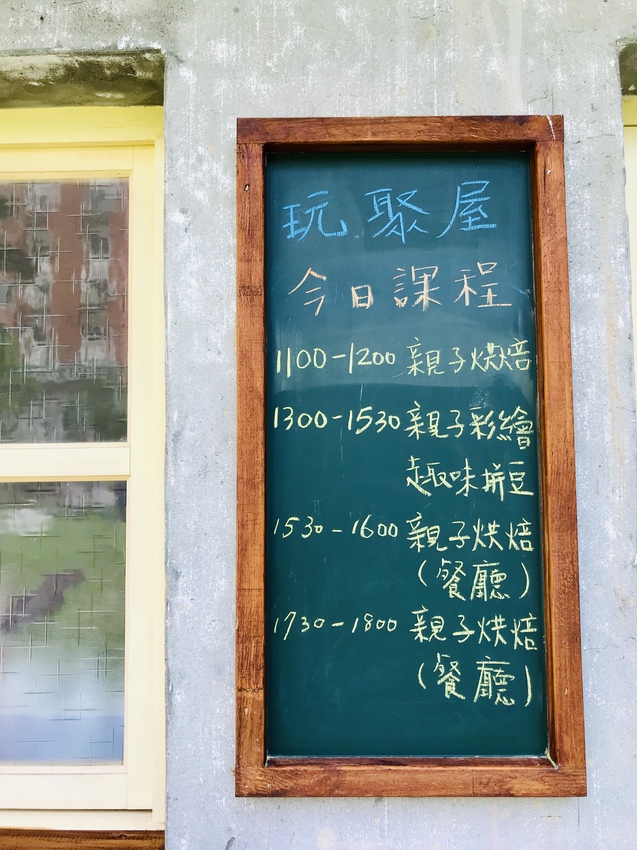 玩聚屋
今日課程
1100-1200 親子烘焙
1300-1530 親子彩繪
趣味拼豆
1530-1600 親子烘焙
(餐廳)
1730-1800 親子烘焙
(餐廳)